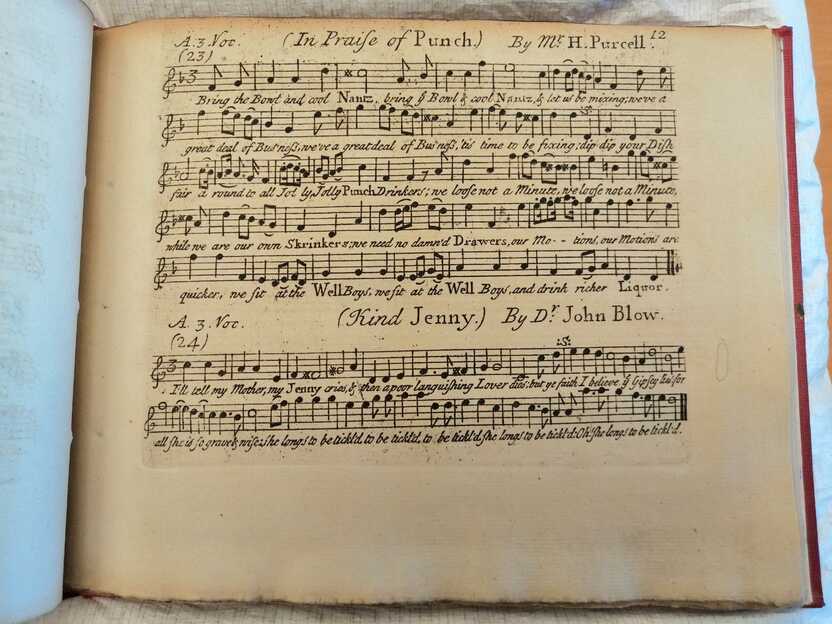 A. 3. Voc. (In Praiſe of Punch.) By Mr. H. Purcell. 12
(23)
Bring the Bowl and cool Nantz, bring ye Bowl & cool Nantz, & let us be mixing; we've a
great deal of Bus'neſs, we've a great deal of Bus'neſs, 'tis time to be fixing; dip dip your Diſh
fair a round to all Jol ly, Jolly Punch Drinkers; we looſe not a Minute, we looſe not a Minute,
while we are our own Skrinkers; we need no damn'd Drawers, our Mo - - tions, our Motions are
quicker, we ſit at the Well Boys, we ſit at the Well Boys, and drink richer Liquor.
A. 3. Voc. (Kind Jenny.) By Dr. John Blow.
(24)
:S:
I'll tell my Mother, my Jenny cries, & then a poor languiſhing Lover dies; but ye faith I believe ye Gipſey for
all ſhe is ſo grave & wiſe: ſhe longs to be tickl'd, to be tickl'd, to be tickl'd, ſhe longs to be tickl'd: Oh! ſhe longs to be tickl'd.